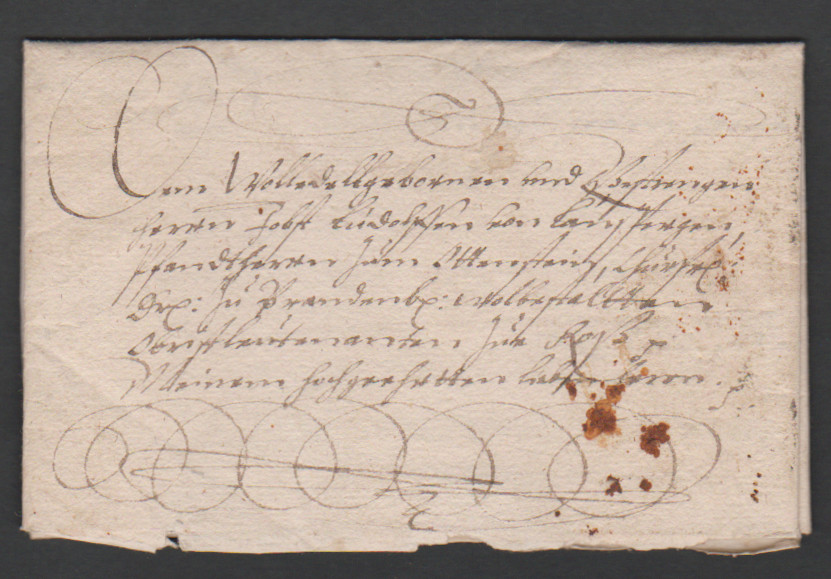 Dem Wolledellgebornen und Gestrengen
Herrn Jobst Ludolffen von
Pfandtherrn zum Ottenstein, Churfl:
zu Brandenb: wolbestalltten
Obristleutenanten zue Roß
Meinem hochgeehrtten lieben Herrn.